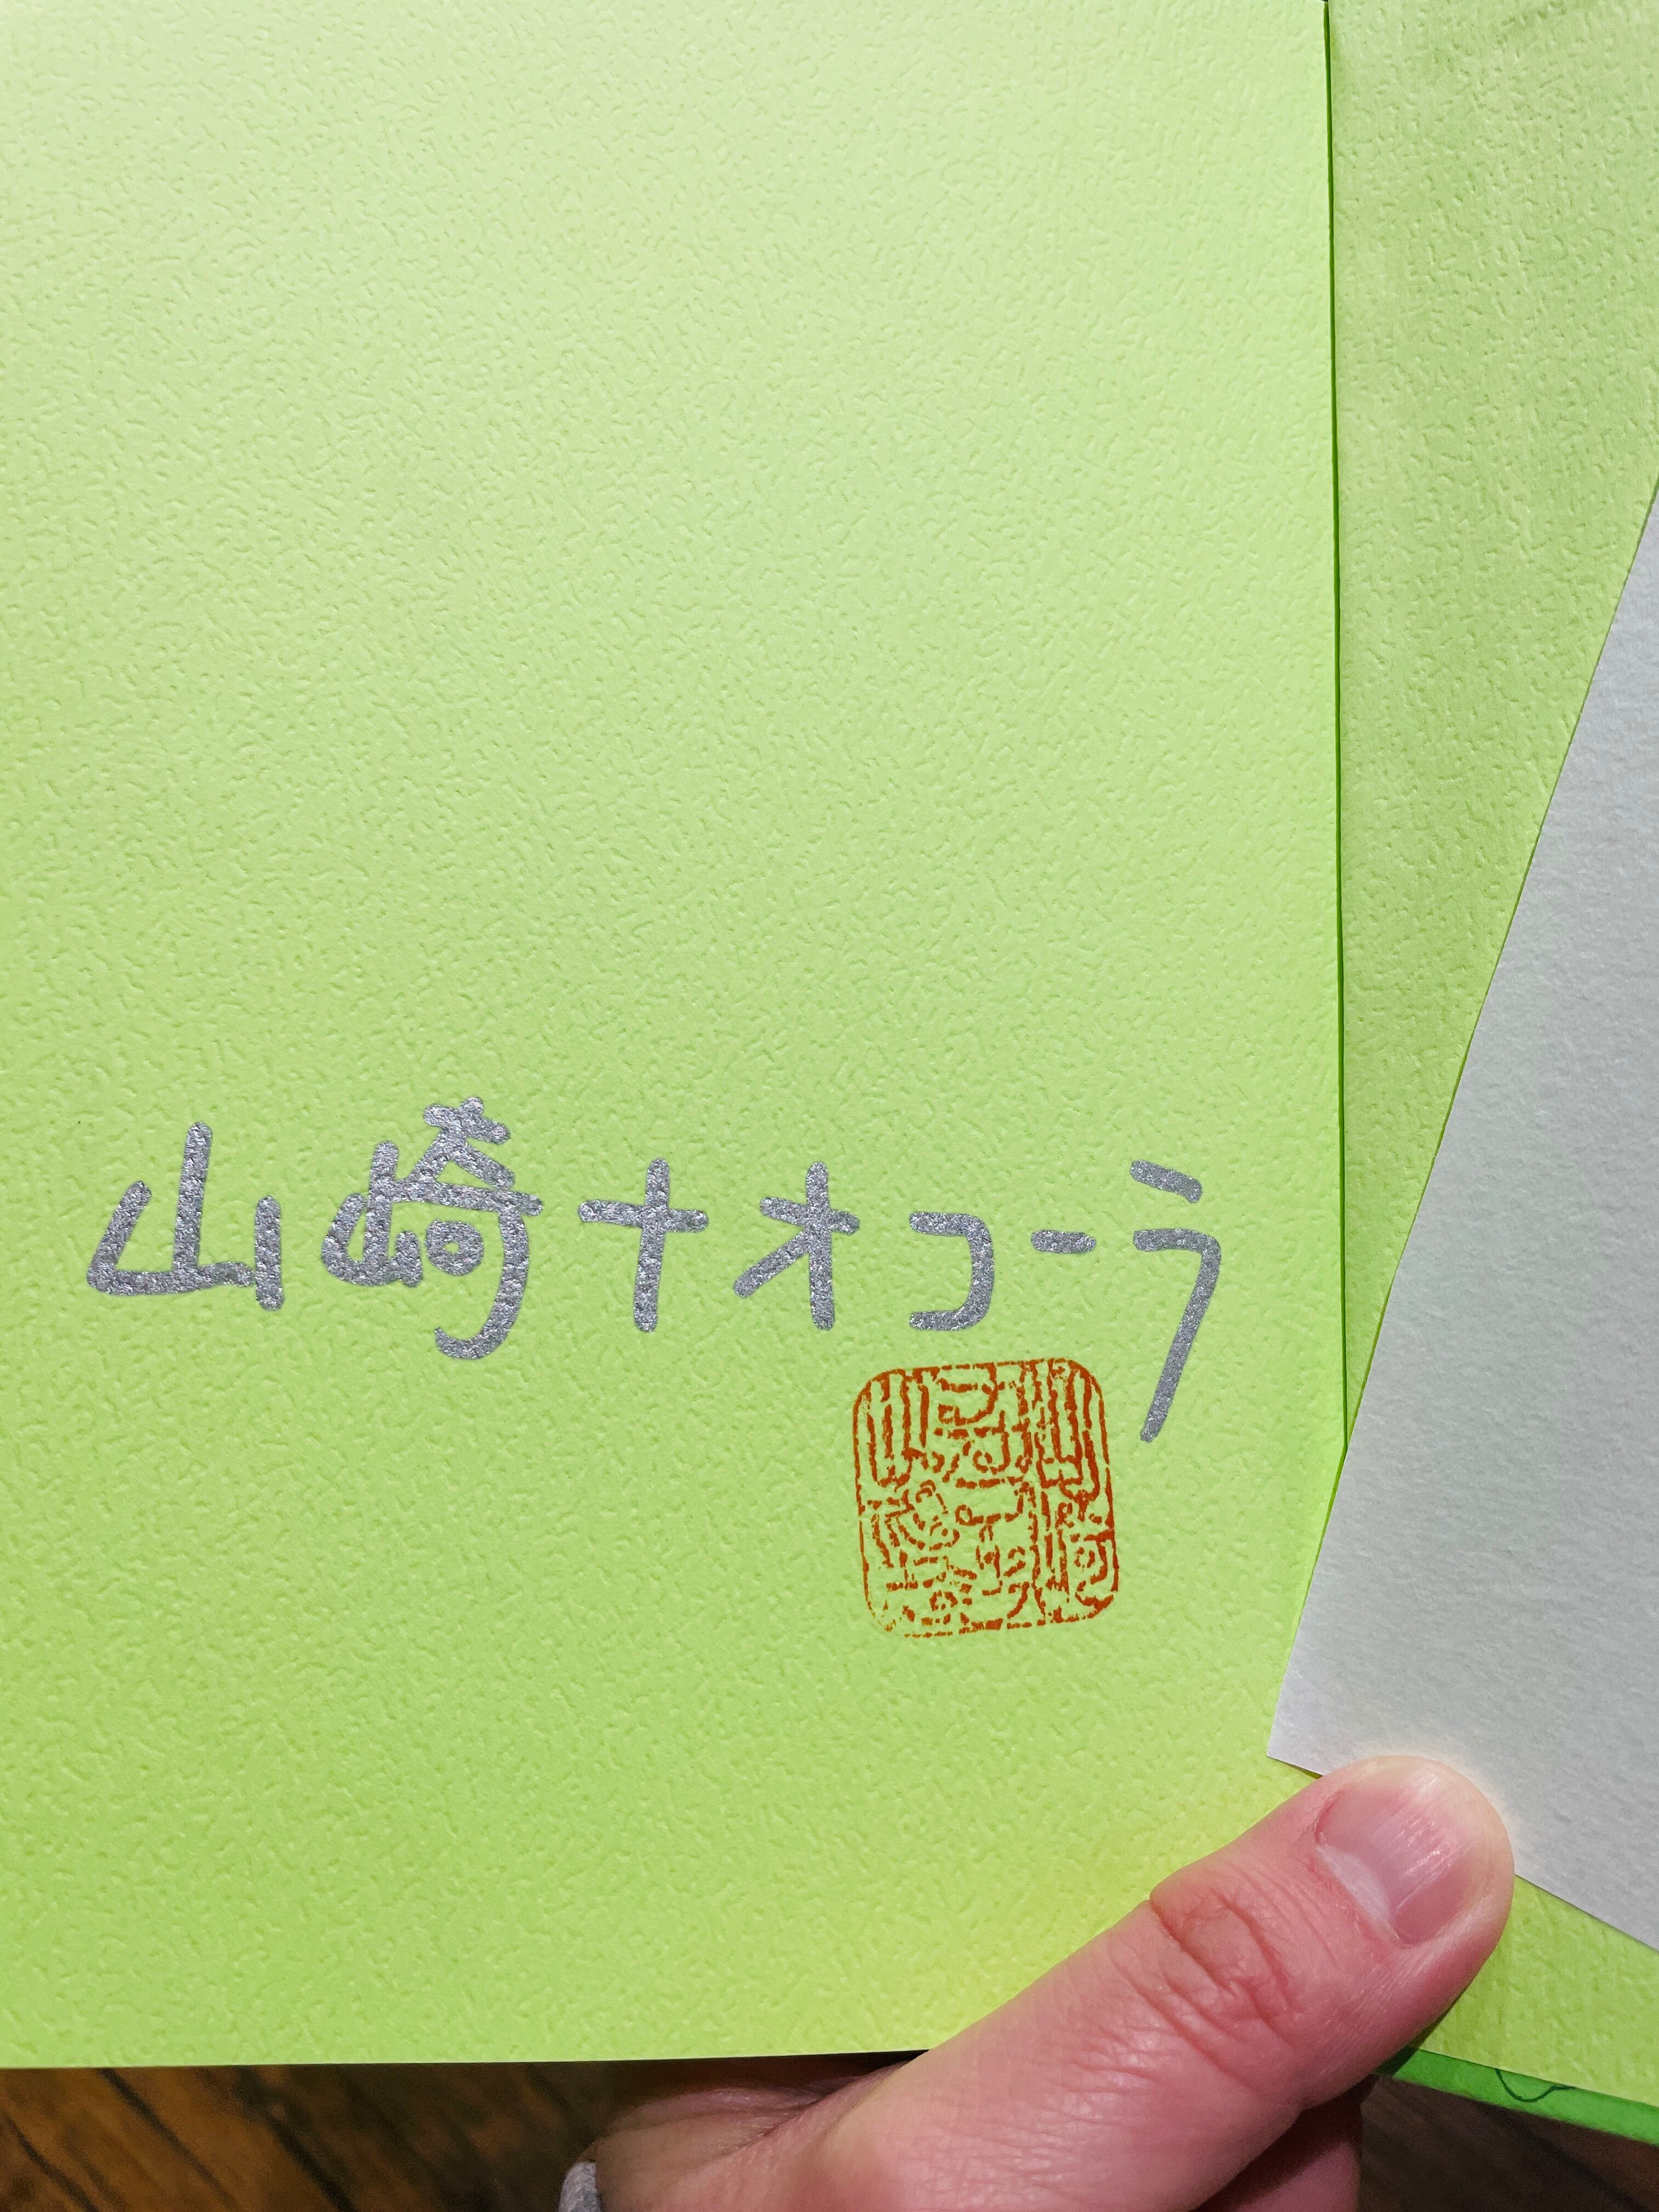 山崎ナオコーラ